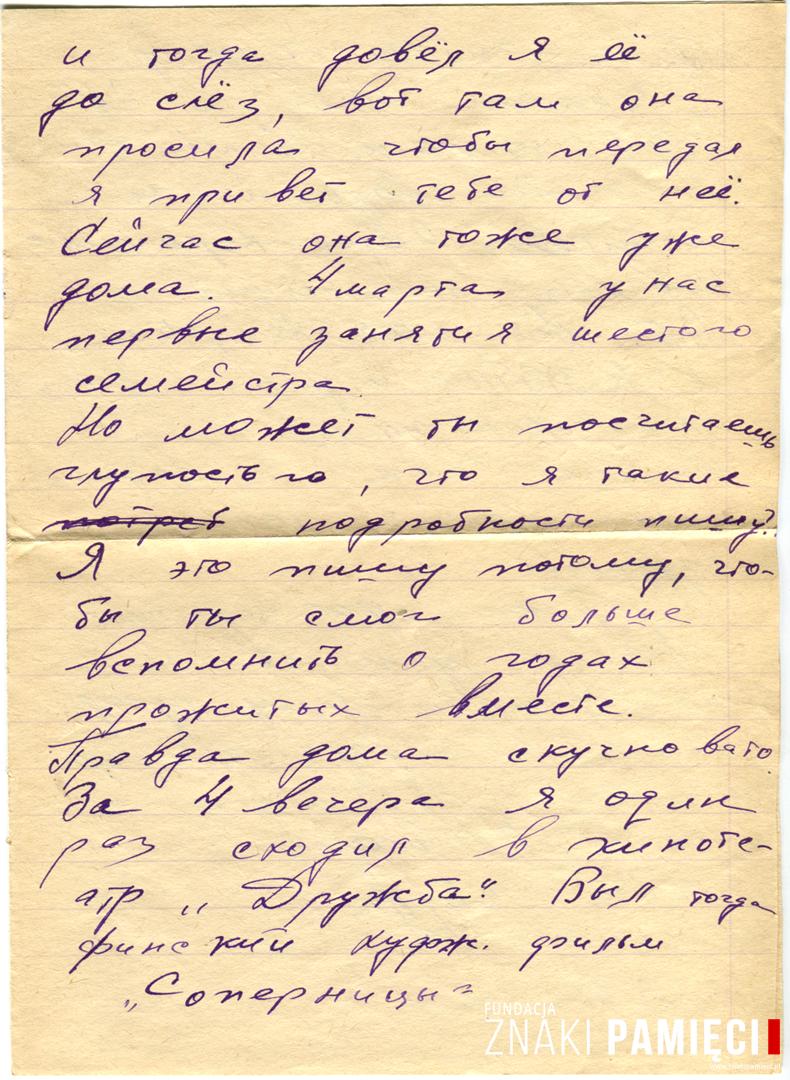 и тогда довёл я её
до слёз, вот там она
просила чтобы передал
я привет тебе от неё.
Сейчас она тоже уже
дома. 4 марта у нас
первые занятия шестого
семейстра.
Но может ты посчитаешь
глупостью, что я такие
потреб подробности пишу?.
Я это пишу потому, что-
бы ты смог больше
вспомнить о годах
прожитых вместе.
Правда дома скучновато.
За 4 вечера я один
раз сходил в киноте-
атр „Дружба". Был тогда
финский худж. фильм
„Соперницы"
FUNDACJA
ZNAKI PAMIĘCI
www.znakipamieci.pl